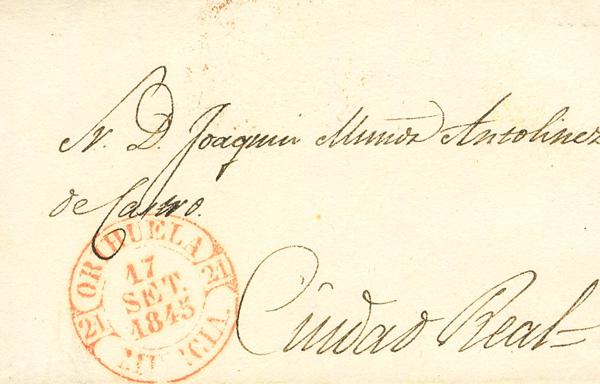 Sr. D. Joaquin Muñoz Antolinez
de Castro.
Ciudad Real
ORIHUELA
21 21
17
SET.
1845
MURCIA.